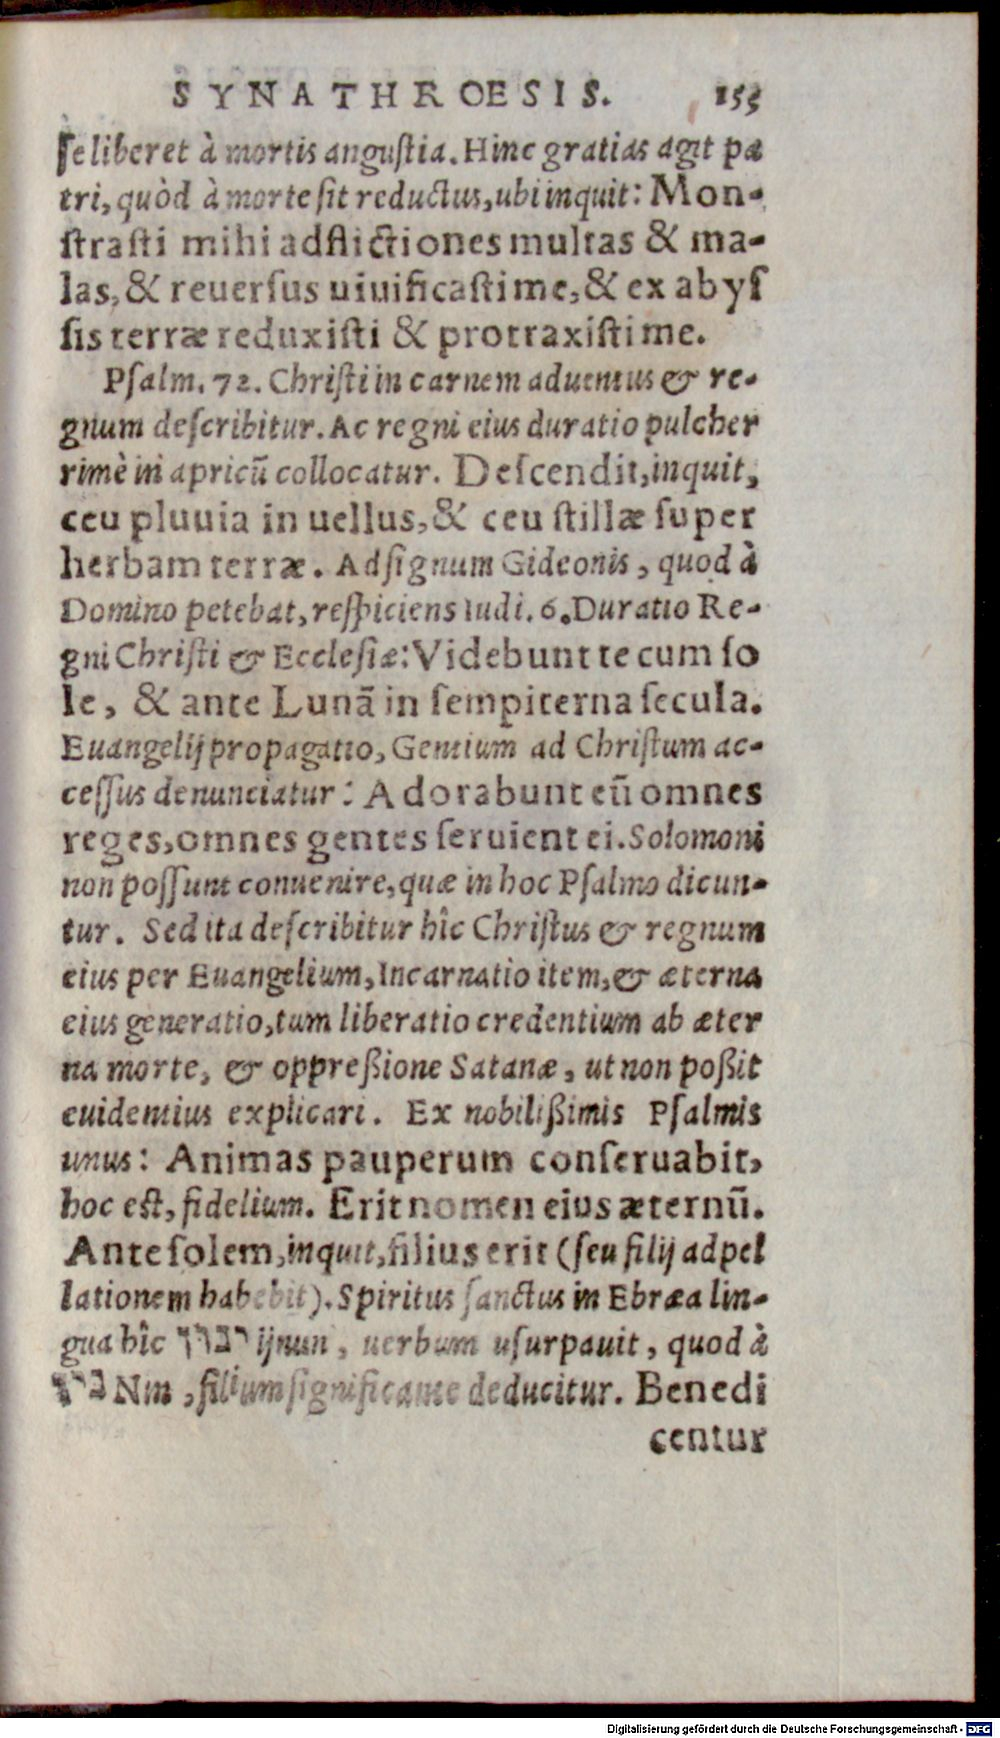 SYNATHROESIS. 153
ſe liberet à mortis anguſtia. Hinc gratias agit pa
tri, quòd à morte ſit reductus, ubi inquit: Mon-
ſtraſti mihi adflictiones multas & ma-
las, & reuerſus uiuificaſti me, & ex abyſ
ſis terræ reduxiſti & protraxiſti me.
Pſalm. 72. Chriſti in carnem aduentus & re-
gnum deſcribitur. Ac regni eius duratio pulcher
rimè in apricū collocatur. Deſcendit, inquit,
ceu pluuia in uellus, & ceu ſtillæ ſuper
herbam terræ. Ad ſignum Gideonis, quod à
Domino petebat, reſpiciens Iudi. 6. Duratio Re-
gni Chriſti & Eccleſiæ: Videbunt te cum ſo
le, & ante Lunā in ſempiterna ſecula.
Euangelij propagatio, Gentium ad Chriſtum ac-
ceſſus denunciatur: Adorabunt eū omnes
reges, omnes gentes ſeruient ei. Solomoni
non poſſunt conuenire, quæ in hoc Pſalmo dicun-
tur. Sed ita deſcribitur hîc Chriſtus & regnum
eius per Euangelium, Incarnatio item, & æterna
eius generatio, tum liberatio credentium ab æter
na morte, & oppreßione Satanæ, ut non poßit
euidentius explicari. Ex nobilißimis Pſalmis
unus: Animas pauperum conſeruabit,
hoc eſt, fidelium. Erit nomen eius æternū.
Ante ſolem, inquit, filius erit (ſeu filij adpel
lationem habebit). Spiritus ſanctus in Ebræa lin-
gua hîc ijnun, uerbum uſurpauit, quod à
Nin, filium ſignificante deducitur. Benedi
centur
Digitalisierung gefördert durch die Deutsche Forschungsgemeinschaft - DFG